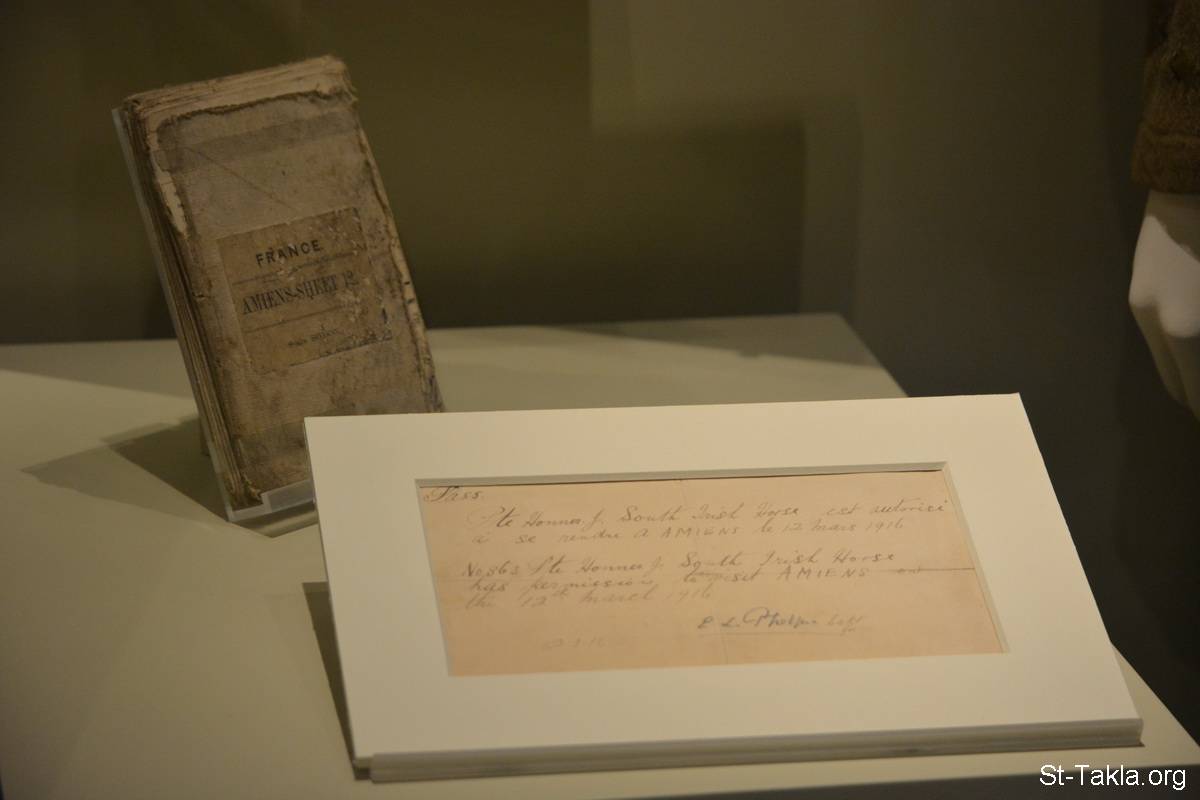 FRANCE
AMIENS-SHEET 12
Pass.
Pte Honner. J. South Irish Horse est autorisé
à se rendre à AMIENS le 12 mars 1916
No 863 Pte Honner J. South Irish Horse
has permission to visit AMIENS on
the 12th March 1916
E L Phelps Capt
St-Takla.org